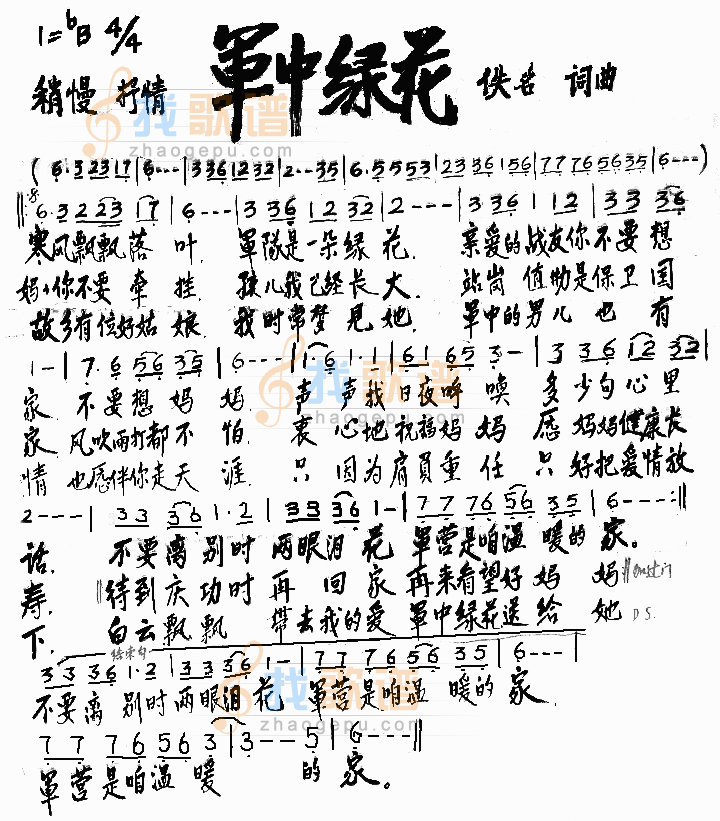 1=♭B 4/4
軍中绿花
稍慢 抒情
佚名 词曲
找歌谱
zhaogepu.com
(6·323217|6---|3361232|2--35|6·55553|2336156|77765635|6---)
6·322317|6---|336 12 32|2---|336 112|33 36
寒风飘飘落叶 軍隊是一朵绿花 亲爱的战友你不要想
妈妈你不要牵挂 孩儿我已经长大 站岗值勤是保卫国
故乡有位好姑娘 我时常梦見她 軍中的男儿也有
1-|7·6 56 35|6---|1·6 1·1|61 65 3-|3 36 12 32|
家 不要想妈妈 声声我日夜呼唤 多少句心里
家 风吹雨打都不怕 衷心地祝福妈妈 愿妈妈健康长
情 也愿伴你走天涯 只因为肩負重任 只好把爱情放
2---|33 36 1·2|33 336 1-|77 76 56 35|6---:||
话. 不要离别时两眼泪花 軍营是咱温暖的家。
寿. 待到庆功时再回家 再来看望好妈妈
下. 白云飘飘 带去我的爱 軍中绿花送给她 D.S.
结束句
33 36 1·2|33 336 1-|77 76 56 35|6---|
不要离别时两眼泪花 軍营是咱温暖的家.
找歌谱
zhaogepu.com
77 76 56 3|3--5|6---||
軍营是咱温暖 的家。